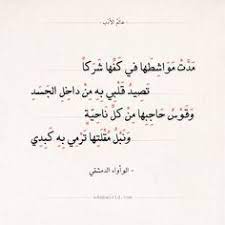 عالم الأدب
مَدَّتْ مَوَاشِطَها في كَفّها شَرَكاً
تَصِيدُ قَلْبي بِهِ مِنْ داخِلِ الجَسَدِ
وَقَوْسُ حَاجِبِها مِنْ كلّ ناحِيَةٍ
وَنَبْلُ مُقْلَتِها تَرْمِي بِهِ كَبِدِي
- الوأواء الدمشقي -
adabworld.com